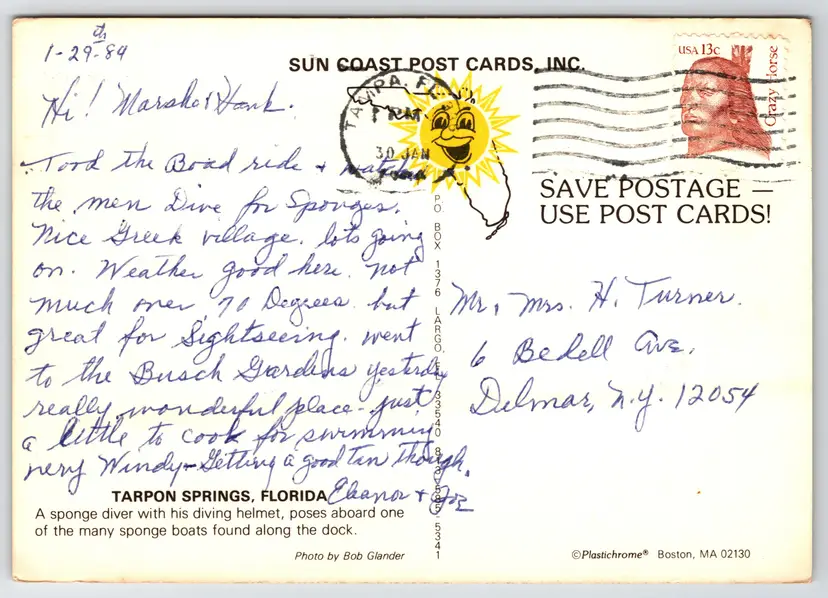 1-29-84
th
SUN COAST POST CARDS, INC.
USA 13c
Crazy Horse
TAMPA, FL
PM
30 JAN
Hi! Marsha & Hank.
SAVE POSTAGE —
USE POST CARDS!
Toord the Boad ride +
the men Dive for Sponges.
Nice Greek village. lots going
on. Weather good here. not
much over 70 Degrees. but
great for Sightseeing. went
to the Busch Gardens yesterday
really wonderful place - just
a little to cook for swimming
very Windy - Getting a good tan though.
Eleanor + Joe
Mr, Mrs. H. Turner.
6 Bedell Ave.
Delmar, N.Y. 12054
P.O. BOX 1376 LARGO, FL 33540
TARPON SPRINGS, FLORIDA
A sponge diver with his diving helmet, poses aboard one
of the many sponge boats found along the dock.
Photo by Bob Glander
©Plastichrome® Boston, MA 02130